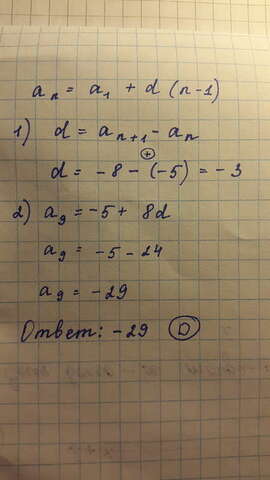 aₙ = a₁ + d (n-1)
1) d = aₙ₊₁ - aₙ
d = -8 - (-5) = -3
+
2) a₉ = -5 + 8d
a₉ = -5 - 24
a₉ = -29
Ответ: -29 D